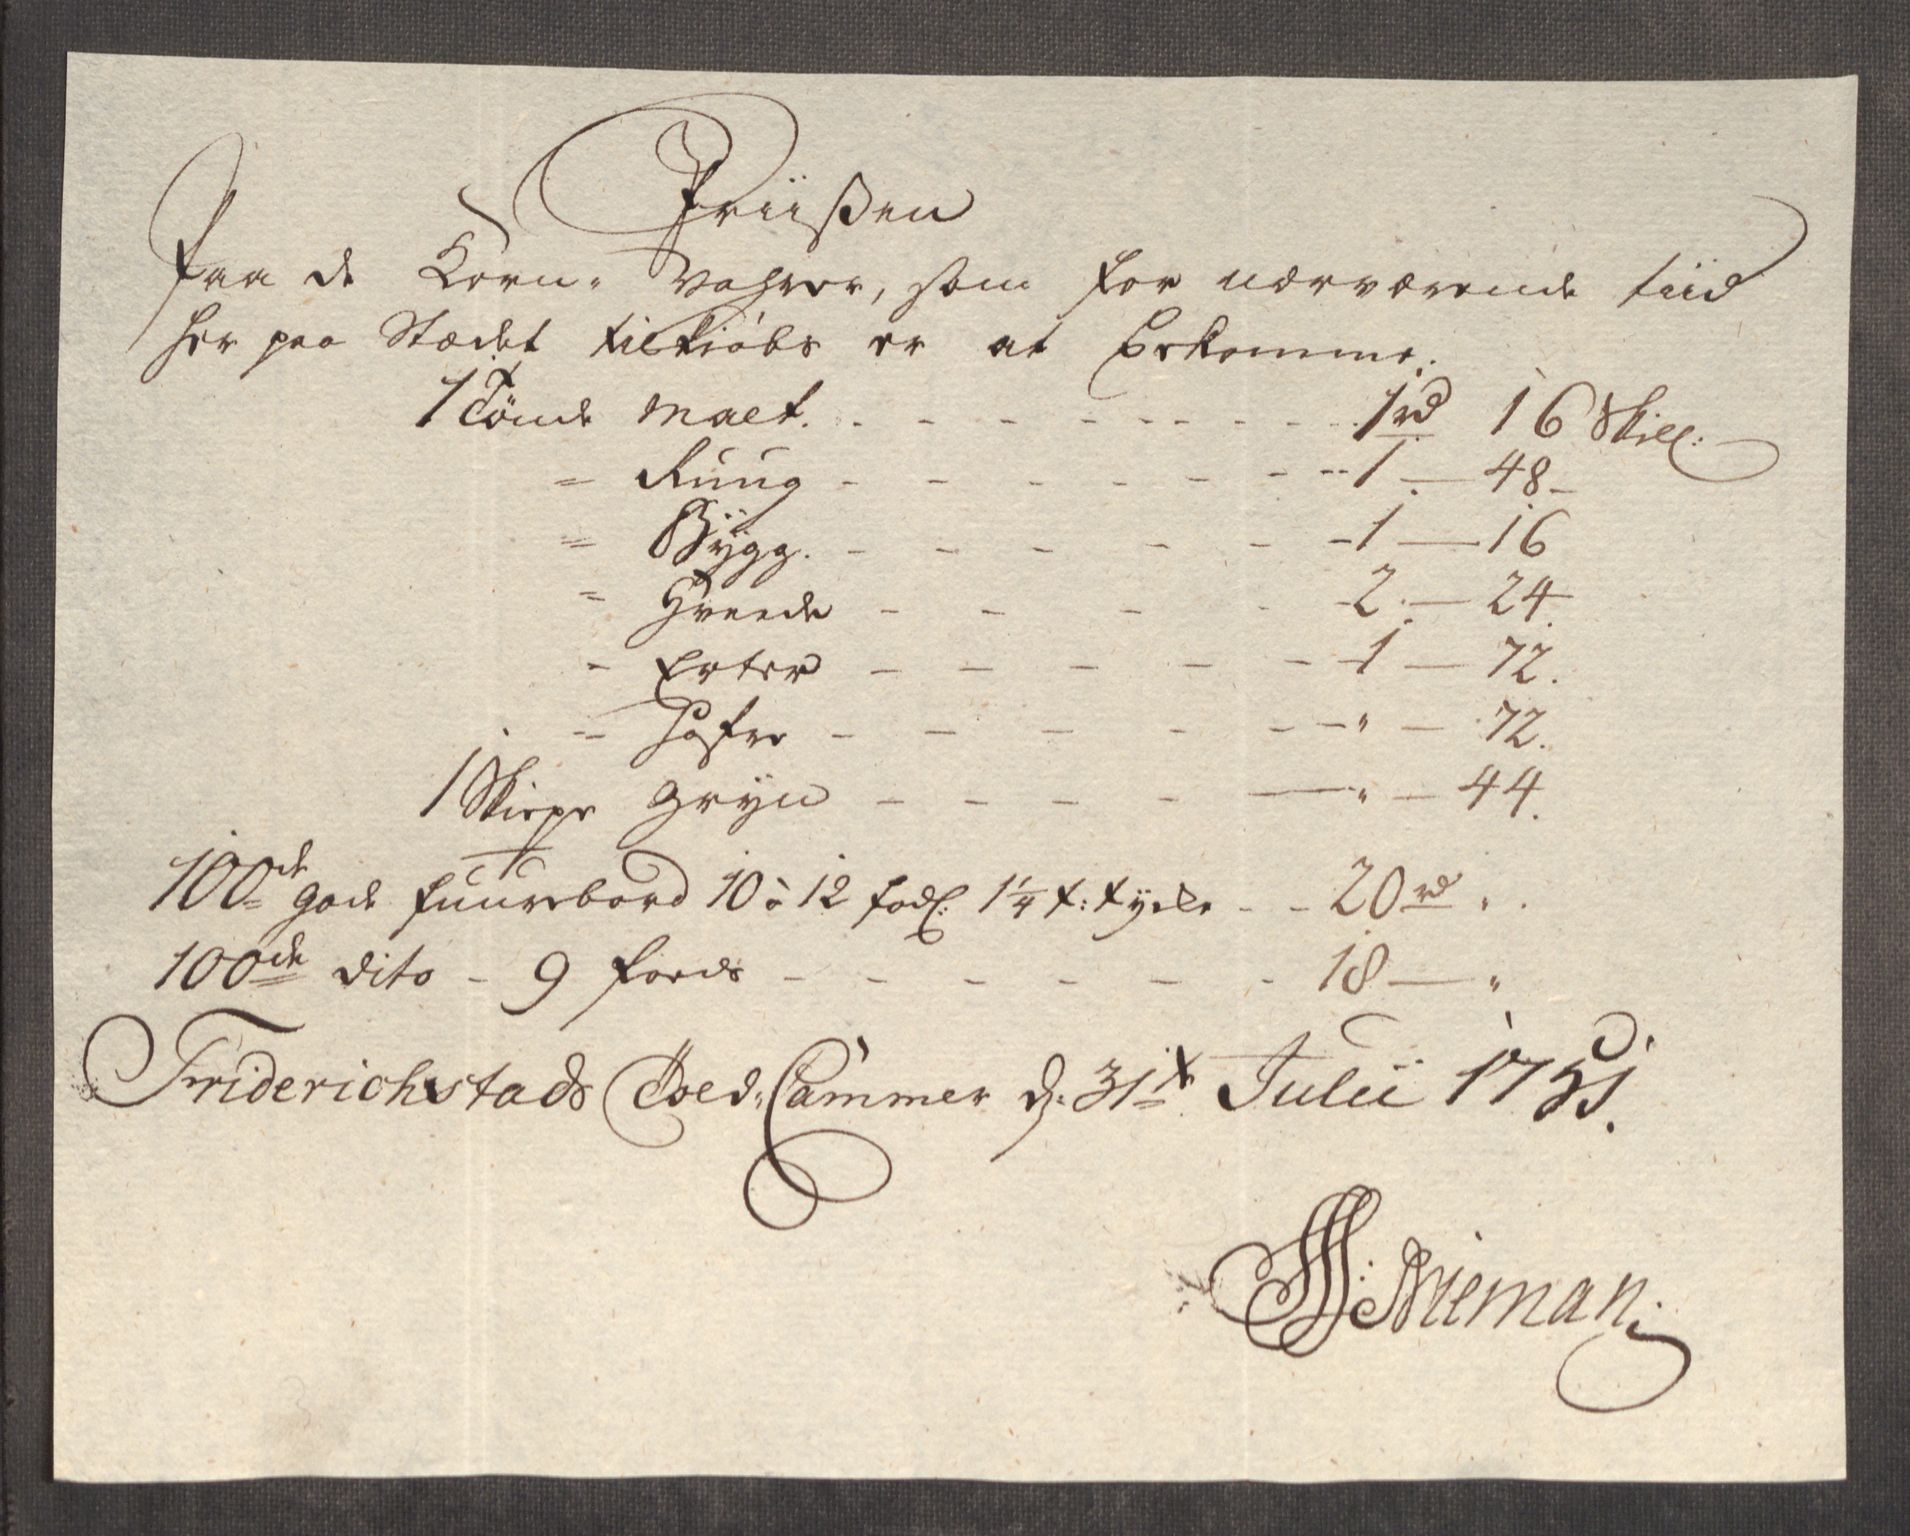 Priißen
Paa de Korn- Vahrer, som for nærværende tiid
her paa Stædet til Kiøbs er at bekomme.
1 Tönde Malt. - - - - - - - - 1 rd 16 Skill:
= Ruug - - - - - - - 1 — 48 -
= Bÿgg. - - - - - - 1 — 16
= Hveede - - - - - 2 — 24.
- Erter - - - - - - 1 — 72.
= Hafre - - - - - - " — 72.
1 Skiepe Grÿn - - - - — " — 44.
100de gode fuurebord 10 à 12 fods: 1¼ t: tycke - - 20 rd " .
100de dito - 9 foeds - - - - - - 18 — "
Friderichstads Toed-Cammer d: 31te Julii 1751.
Nieman.